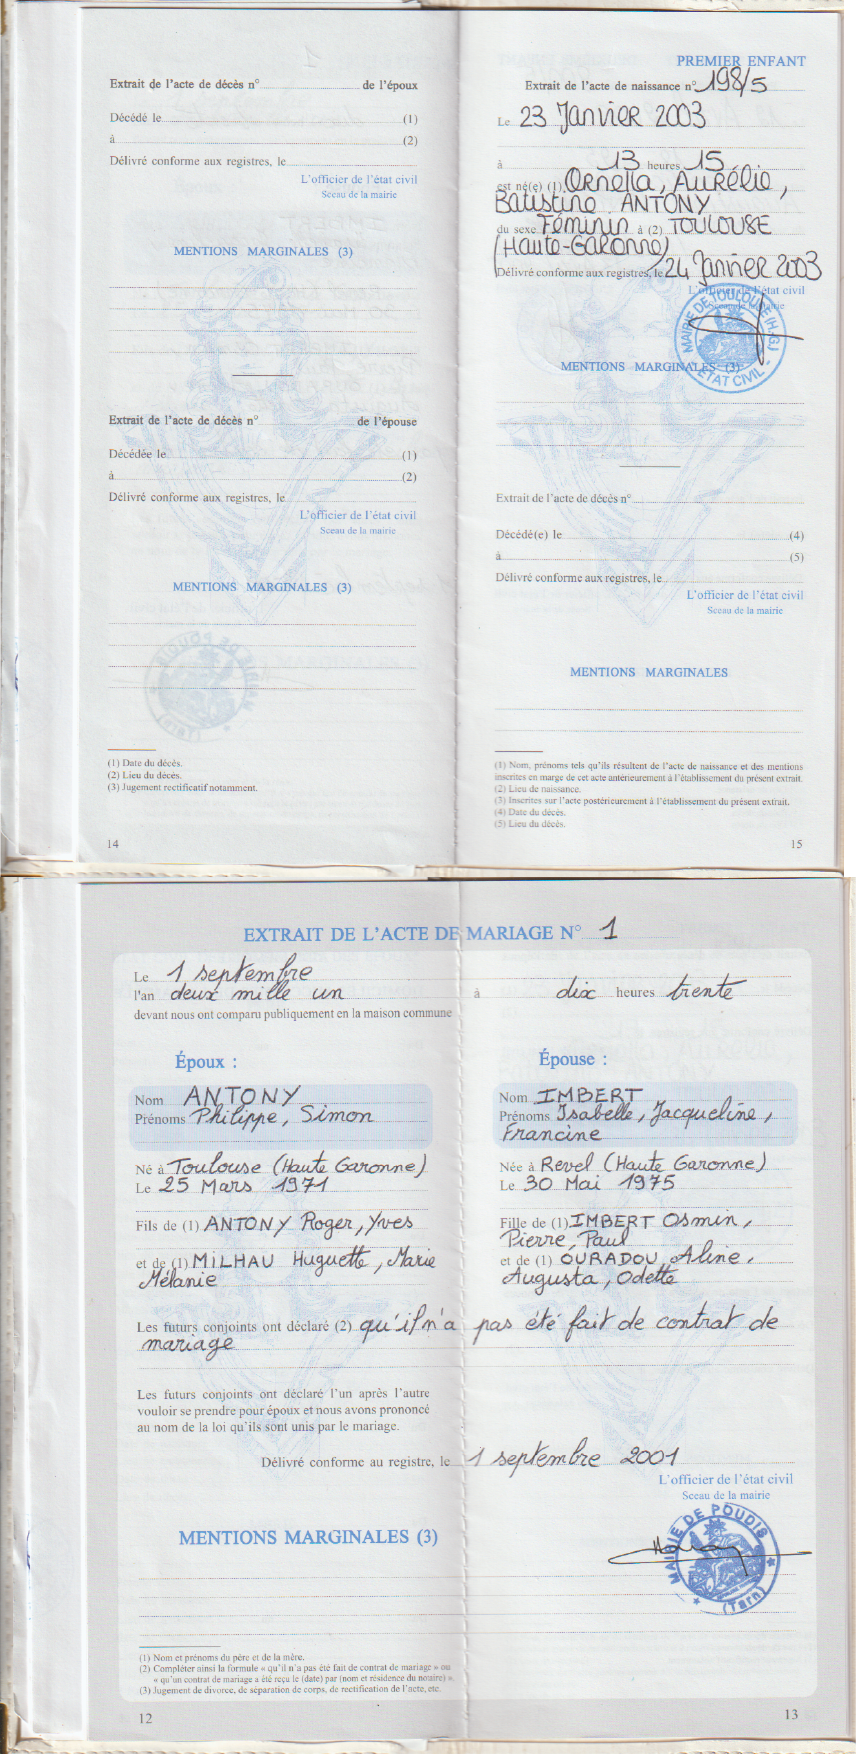 Extrait de l'acte de décès n° de l'époux
Décédé le (1)
à (2)
Délivré conforme aux registres, le
L'officier de l'état civil
Sceau de la mairie
MENTIONS MARGINALES (3)
Extrait de l'acte de décès n° de l'épouse
Décédée le (1)
à (2)
Délivré conforme aux registres, le
L'officier de l'état civil
Sceau de la mairie
MENTIONS MARGINALES (3)
(1) Date du décès.
(2) Lieu du décès.
(3) Jugement rectificatif notamment.
14
PREMIER ENFANT
Extrait de l'acte de naissance n° 198/5
Le 23 Janvier 2003
à 13 heures 15
est né(e) (1) Ornella, Aurélie,
Batistine ANTONY
du sexe Féminin à (2) TOULOUSE
(Haute-Garonne)
Délivré conforme aux registres, le 24 Janvier 2003
L'officier de l'état civil
Sceau de la mairie
MAIRIE DE TOULOUSE (H.-G.)
ETAT CIVIL
MENTIONS MARGINALES (3)
Extrait de l'acte de décès n°
Décédé(e) le (4)
à (5)
Délivré conforme aux registres, le
L'officier de l'état civil
Sceau de la mairie
MENTIONS MARGINALES
(1) Nom, prénoms tels qu'ils résultent de l'acte de naissance et des mentions
inscrites en marge de cet acte antérieurement à l'établissement du présent extrait.
(2) Lieu de naissance.
(3) Inscrites sur l'acte postérieurement à l'établissement du présent extrait.
(4) Date du décès.
(5) Lieu du décès.
15
EXTRAIT DE L'ACTE DE MARIAGE N° 1
Le 1 septembre
l'an deux mille un à dix heures trente
devant nous ont comparu publiquement en la maison commune
Époux :
Nom ANTONY
Prénoms Philippe, Simon
Né à Toulouse (Haute Garonne)
Le 25 Mars 1971
Fils de (1) ANTONY Roger, Yves
et de (1) MILHAU Huguette, Marie
Mélanie
Épouse :
Nom IMBERT
Prénoms Isabelle, Jacqueline,
Francine
Née à Revel (Haute Garonne)
Le 30 Mai 1975
Fille de (1) IMBERT Osmin,
Pierre, Paul
et de (1) OURADOU Aline,
Augusta, Odette
Les futurs conjoints ont déclaré (2) qu'il n'a pas été fait de contrat de
mariage
Les futurs conjoints ont déclaré l'un après l'autre
vouloir se prendre pour époux et nous avons prononcé
au nom de la loi qu'ils sont unis par le mariage.
Délivré conforme au registre, le 1 septembre 2001
L'officier de l'état civil
Sceau de la mairie
MAIRIE DE POUDIS
(Tarn)
MENTIONS MARGINALES (3)
(1) Nom et prénoms du père et de la mère.
(2) Compléter ainsi la formule « qu'il n'a pas été fait de contrat de mariage » ou
« qu'un contrat de mariage a été reçu le (date) par (nom et résidence du notaire) ».
(3) Jugement de divorce, de séparation de corps, de rectification de l'acte, etc.
12
13